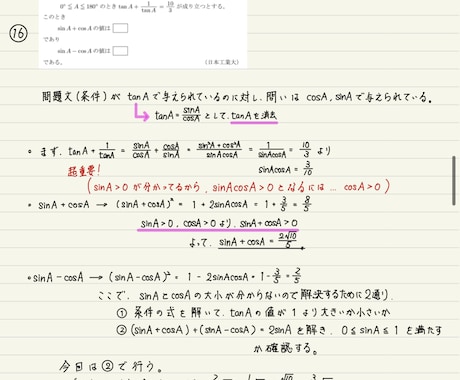 ⑯
0°≦A≦180°のとき tanA + 1/tanA = 10/3 が成り立つとする。
このとき
sin A + cos A の値は □
であり
sin A − cos A の値は □
である。 (日本工業大)
問題文(条件)が tanA で与えられているのに対し、問いは cosA, sinA で与えられている。
↳ tanA = sinA/cosA として、tanAを消去
• まず、tanA + 1/tanA = sinA/cosA + cosA/sinA = sin²A + cos²A/sinAcosA = 1/sinAcosA = 10/3 より
sinAcosA = 3/10
超重要!
(sinA>0 が分かってるから、sinAcosA>0 となるには … cosA>0)
• sinA + cosA → (sinA + cosA)² = 1 + 2sinAcosA = 1 + 3/5 = 8/5
sinA>0, cosA>0 より、sinA + cosA>0
よって、sinA + cosA = 2√10/5
• sinA − cosA → (sinA − cosA)² = 1 − 2sinAcosA = 1 − 3/5 = 2/5
ここで、sinAとcosAの大小が分からないので解決するために2通り。
① 条件の式を解いて、tanAの値が1より大きいか小さいか
② (sinA + cosA) + (sinA − cosA) = 2sinA を解き、0≦sinA≦1 を満たす
か確認する。
今回は②で行う。